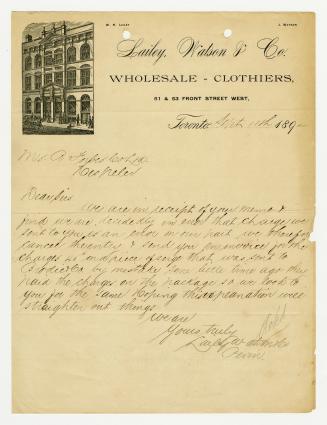 W. R. Lailey J. Watson
Lailey, Watson & Co.
WHOLESALE - CLOTHIERS,
51 & 53 FRONT STREET WEST,
Toronto, 11th 189
Hespeler
Dear Sirs
We are in receipt of your Memo &
find we are decidedly in error that charge we
sent to you is an error on our part we therefor
cancel the entry & send you memo for the
charge as a piece of song that was sent to
by mistake some little time ago they
paid the charges on the package so we look to
you for the same Hoping this explanation will
straighten out things
We are
Yours truly
Lailey Watson & Co